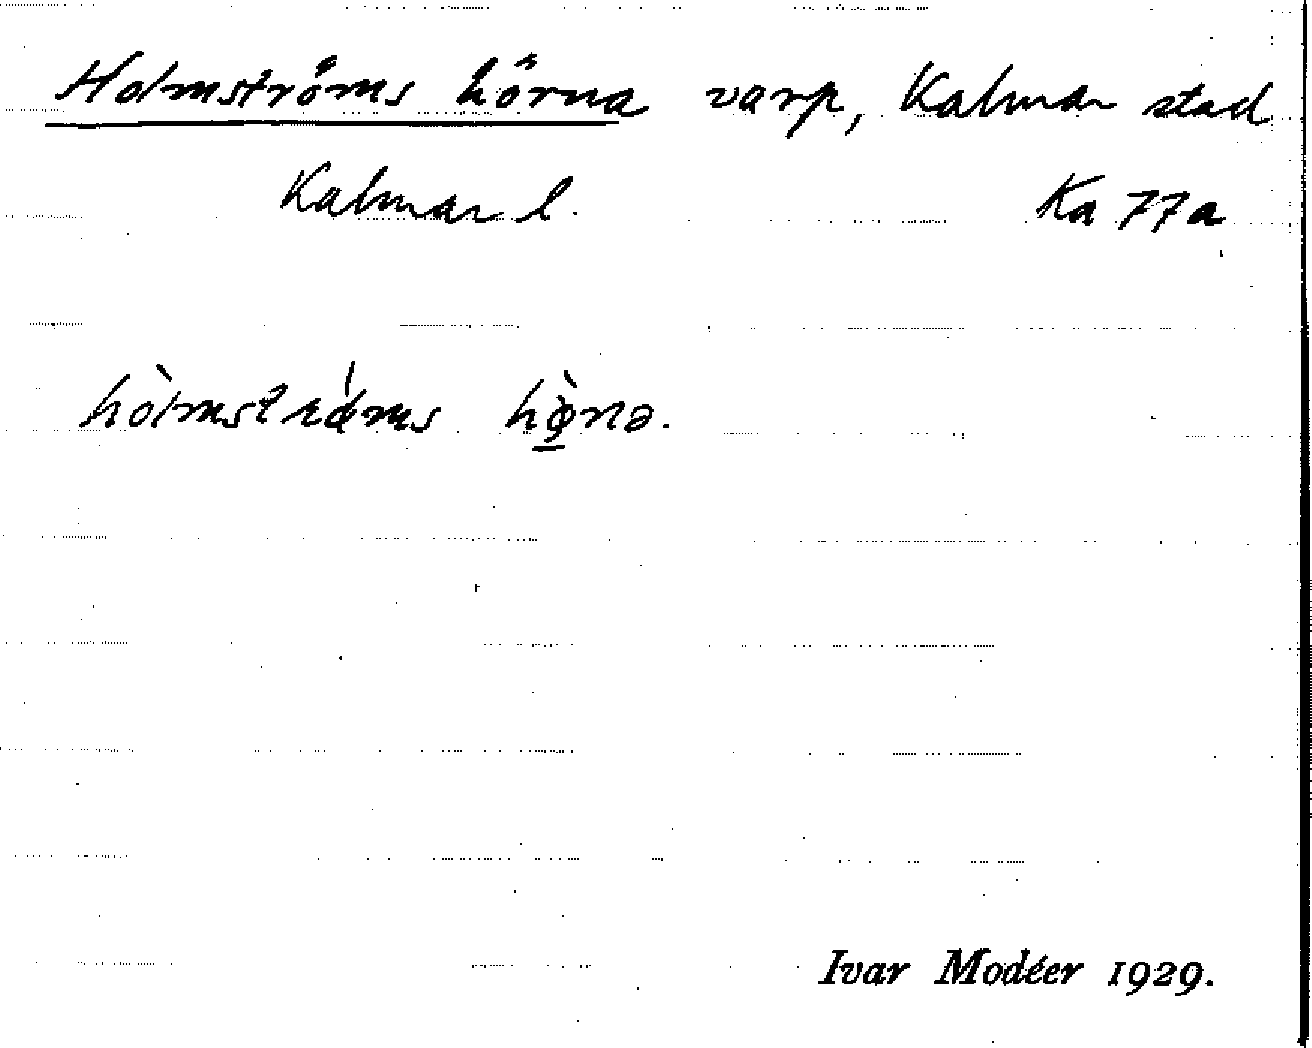 Holmströms hörna varp, Kalmar stad
Kalmar l. Ka 77a
hòlmstrǿms hø̱̀rnə.
Ivar Modéer 1929.